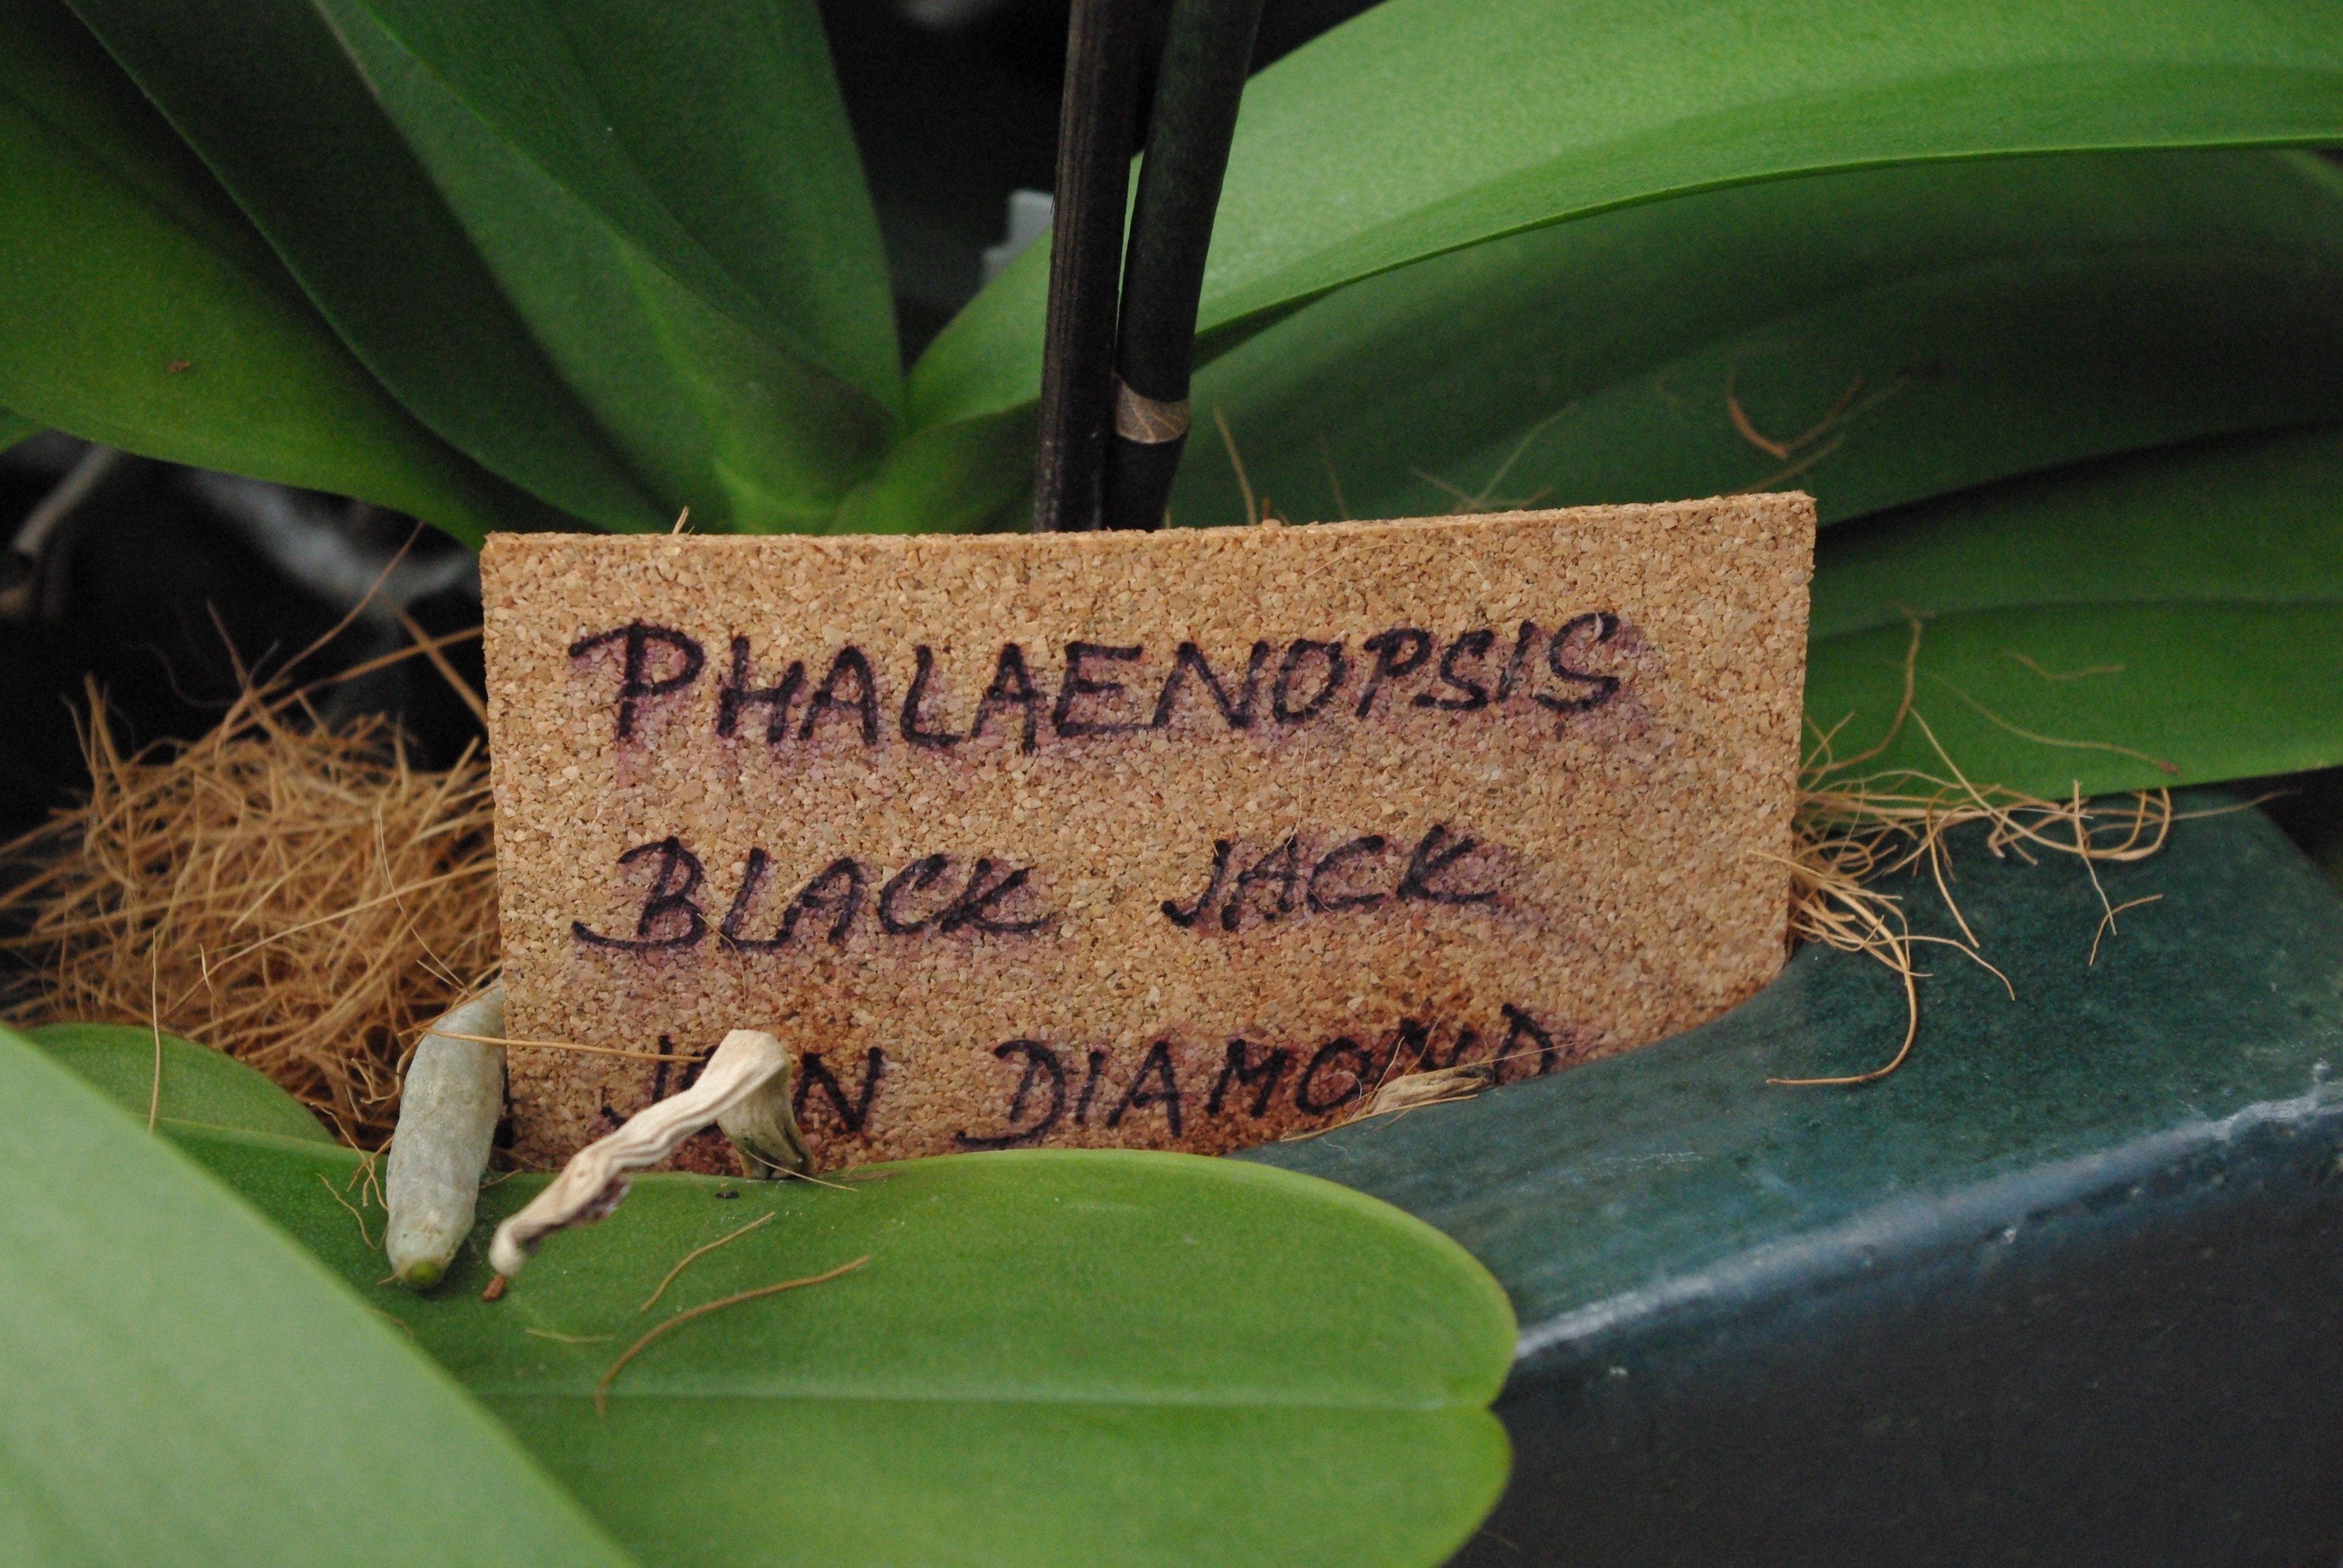 PHALAENOPSIS
BLACK JACK
DIAMOND